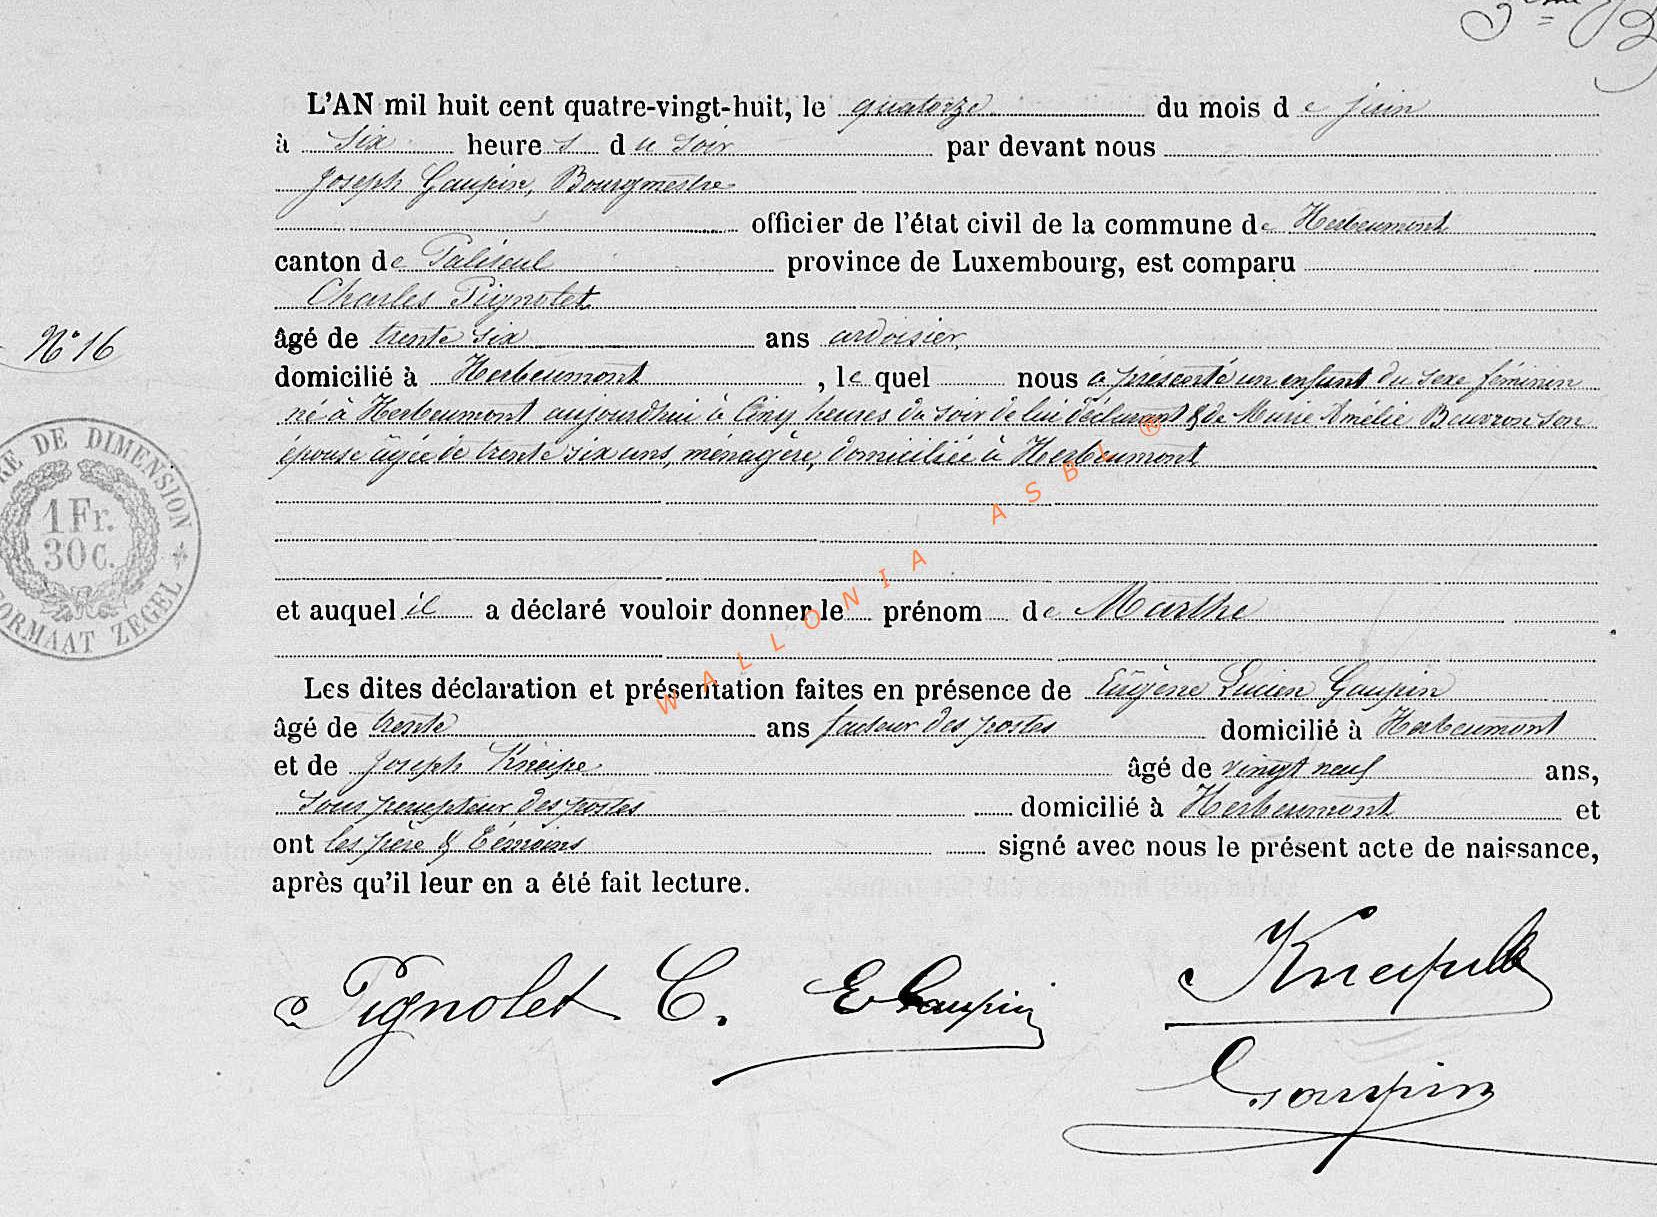 L'AN mil huit cent quatre-vingt-huit, le quatorze du mois de juin
à six heures du soir par devant nous
Joseph Gaupin, Bourgmestre
officier de l'état civil de la commune de Herbeumont
canton de Paliseul province de Luxembourg, est comparu
Charles Pignolet
N° 16
âgé de trente six ans ardoisier
domicilié à Herbeumont, lequel nous a présenté un enfant du sexe féminin
né à Herbeumont aujourdhui à Cinq heures du soir de lui déclarant & de Marie Amélie Beuvron son
épouse âgée de trente six ans, ménagère, domiciliée à Herbeumont
RE DE DIMENSION
1 Fr.
30 C.
FORMAAT ZEGEL
WALLONIA ASBL ®
et auquel il a déclaré vouloir donner le prénom de Marthe
Les dites déclaration et présentation faites en présence de Eugène Lucien Gaupin
âgé de trente ans facteur des postes domicilié à Herbeumont
et de Joseph Kneipe âgé de vingt neuf ans,
sous percepteur des postes domicilié à Herbeumont et
ont les père & témoins signé avec nous le présent acte de naissance,
après qu'il leur en a été fait lecture.
Pignolet C. E Gaupin
Gaupin